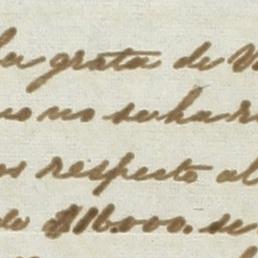 la grata de V
no no se ha r
os respecto al
de $16.000. se